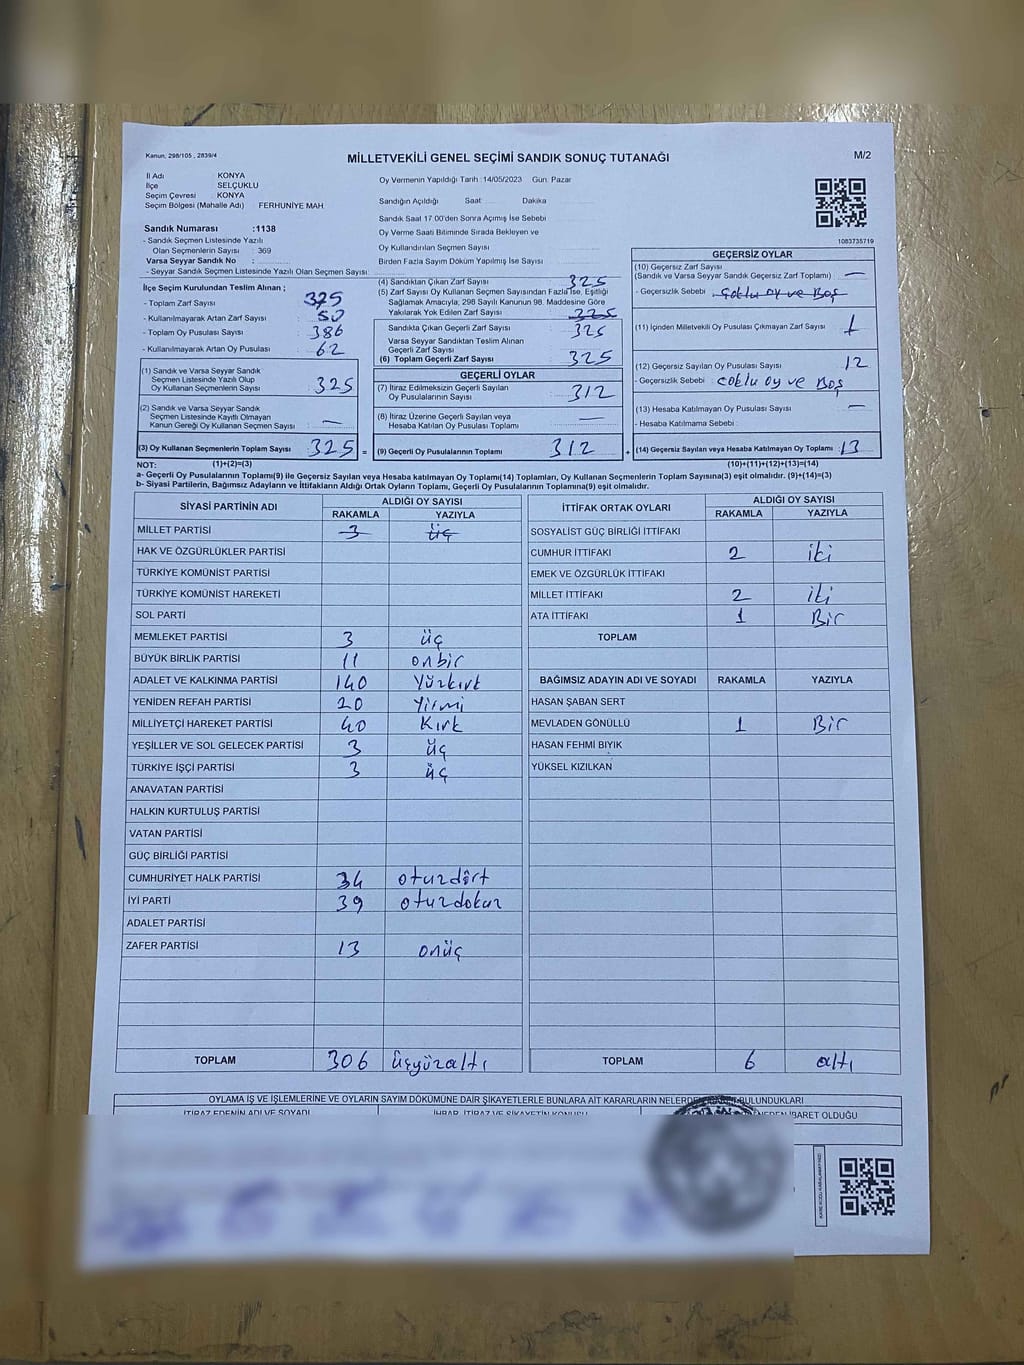 Kanun; 298/105 , 2839/4
MİLLETVEKİLİ GENEL SEÇİMİ SANDIK SONUÇ TUTANAĞI
M/2
İl Adı : KONYA
İlçe : SELÇUKLU
Seçim Çevresi : KONYA
Seçim Bölgesi (Mahalle Adı) : FERHUNİYE MAH.
Sandık Numarası :1138
- Sandık Seçmen Listesinde Yazılı
Olan Seçmenlerin Sayısı : 369
Varsa Seyyar Sandık No :
- Seyyar Sandık Seçmen Listesinde Yazılı Olan Seçmen Sayısı:
Oy Vermenin Yapıldığı Tarih :14/05/2023 Gün: Pazar
Sandığın Açıldığı Saat Dakika
Sandık Saat 17.00'den Sonra Açımış İse Sebebi
Oy Verme Saati Bitiminde Sırada Bekleyen ve
Oy Kullandırılan Seçmen Sayısı
Birden Fazla Sayım Döküm Yapılmış İse Sayısı
1083735719
İlçe Seçim Kurulundan Teslim Alınan ;
- Toplam Zarf Sayısı : 375
- Kullanılmayarak Artan Zarf Sayısı : 50
- Toplam Oy Pusulası Sayısı : 386
- Kullanılmayarak Artan Oy Pusulası : 62
(1) Sandık ve Varsa Seyyar Sandık
Seçmen Listesinde Yazılı Olup
Oy Kullanan Seçmenlerin Sayısı : 325
(2) Sandık ve Varsa Seyyar Sandık
Seçmen Listesinde Kayıtlı Olmayan
Kanun Gereği Oy Kullanan Seçmen Sayısı : —
(3) Oy Kullanan Seçmenlerin Toplam Sayısı : 325 =
(4) Sandıktan Çıkan Zarf Sayısı : 325
(5) Zarf Sayısı Oy Kullanan Seçmen Sayısından Fazla İse, Eşitliği
Sağlamak Amacıyla; 298 Sayılı Kanunun 98. Maddesine Göre
Yakılarak Yok Edilen Zarf Sayısı : 325
Sandıkta Çıkan Geçerli Zarf Sayısı : 325
Varsa Seyyar Sandıktan Teslim Alınan
Geçerli Zarf Sayısı
(6) Toplam Geçerli Zarf Sayısı : 325
GEÇERLİ OYLAR
(7) İtiraz Edilmeksizin Geçerli Sayılan
Oy Pusulasının Sayısı : 312
(8) İtiraz Üzerine Geçerli Sayılan veya
Hesaba Katılan Oy Pusulası Toplamı : —
(9) Geçerli Oy Pusulalarının Toplamı : 312 +
GEÇERSİZ OYLAR
(10) Geçersiz Zarf Sayısı
(Sandık ve Varsa Seyyar Sandık Geçersiz Zarf Toplamı) : —
- Geçersizlik Sebebi : Çoklu oy ve Boş
(11) İçinden Milletvekili Oy Pusulası Çıkmayan Zarf Sayısı : 1
(12) Geçersiz Sayılan Oy Pusulası Sayısı : 12
- Geçersizlik Sebebi : çoklu oy ve Boş
(13) Hesaba Katılmayan Oy Pusulası Sayısı : —
- Hesaba Katılmama Sebebi :
(14) Geçersiz Sayılan veya Hesaba Katılmayan Oy Pusulası Toplamı : 13
NOT: (1)+(2)=(3) (10)+(11)+(12)+(13)=(14)
a- Geçerli Oy Pusulalarının Toplamı(9) ile Geçersiz Sayılan veya Hesaba katılmayan Oy Pusulası Toplamı(14) Toplamları, Oy Kullanan Seçmenlerin Toplam Sayısına(3) eşit olmalıdır. (9)+(14)=(3)
b- Siyasi Partilerin, Bağımsız Adayların ve İttifakların Aldığı Ortak Oyların Toplamı, Geçerli Oy Pusulalarının Toplamına(9) eşit olmalıdır.
SİYASİ PARTİNİN ADI ALDIĞI OY SAYISI
RAKAMLA YAZIYLA
MİLLET PARTİSİ 3 üç
HAK VE ÖZGÜRLÜKLER PARTİSİ
TÜRKİYE KOMÜNİST PARTİSİ
TÜRKİYE KOMÜNİST HAREKETİ
SOL PARTİ
MEMLEKET PARTİSİ 3 üç
BÜYÜK BİRLİK PARTİSİ 11 onbir
ADALET VE KALKINMA PARTİSİ 140 Yüzkırk
YENİDEN REFAH PARTİSİ 20 Yirmi
MİLLİYETÇİ HAREKET PARTİSİ 40 Kırk
YEŞİLLER VE SOL GELECEK PARTİSİ 3 üç
TÜRKİYE İŞÇİ PARTİSİ 3 üç
ANAVATAN PARTİSİ
HALKIN KURTULUŞ PARTİSİ
VATAN PARTİSİ
GÜÇ BİRLİĞİ PARTİSİ
CUMHURİYET HALK PARTİSİ 34 otuzdört
İYİ PARTİ 39 otuzdokuz
ADALET PARTİSİ
ZAFER PARTİSİ 13 onüç
TOPLAM 306 üçyüzaltı
İTTİFAK ORTAK OYLARI ALDIĞI OY SAYISI
RAKAMLA YAZIYLA
SOSYALİST GÜÇ BİRLİĞİ İTTİFAKI
CUMHUR İTTİFAKI 2 iki
EMEK VE ÖZGÜRLÜK İTTİFAKI
MİLLET İTTİFAKI 2 iki
ATA İTTİFAKI 1 Bir
TOPLAM
BAĞIMSIZ ADAYIN ADI VE SOYADI RAKAMLA YAZIYLA
HASAN ŞABAN SERT
MEVLADEN GÖNÜLLÜ 1 Bir
HASAN FEHMİ BIYIK
YÜKSEL KIZILKAN
TOPLAM 6 altı
OYLAMA İŞ VE İŞLEMLERİNE VE OYLARIN SAYIM DÖKÜMÜNE DAİR ŞİKAYETLERLE BUNLARA AİT KARARLARIN BULUNDUKLARI
İTİRAZ EDENİN ADI VE SOYADI İHBAR, İTİRAZ VE ŞİKAYETİN KONUSU NEDEN İBARET OLDUĞU